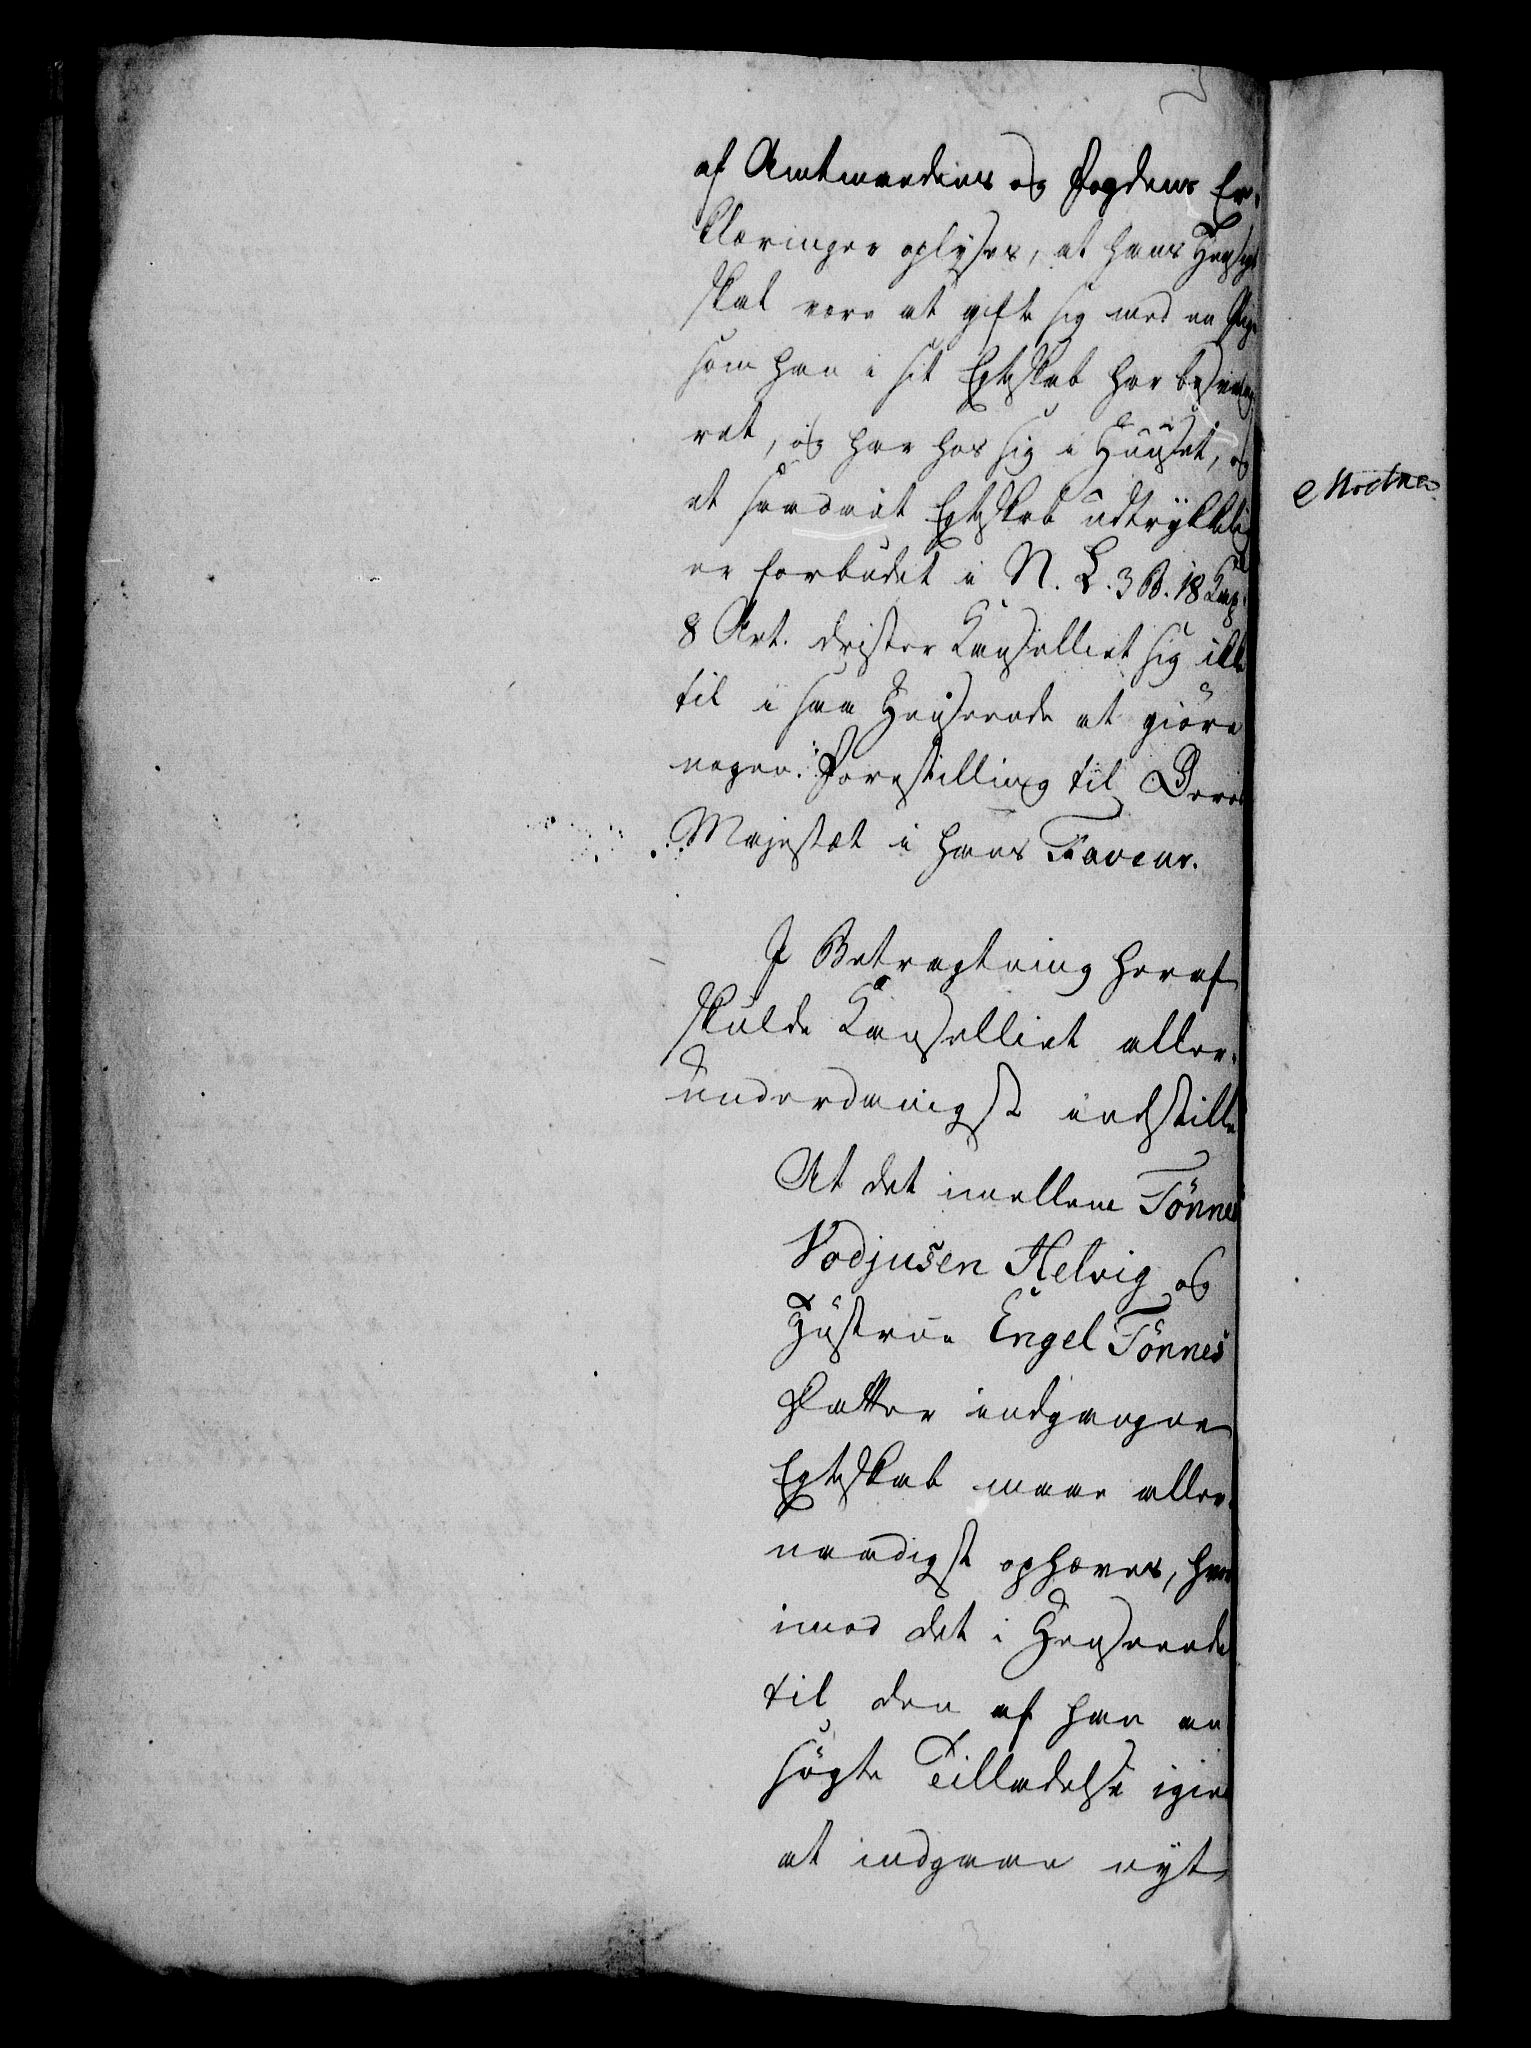 af Amtmandens og Fogdens Er-
klæringer oplyses, at hans Hensigt
skal være at gifte sig med en Pige
som han i sit Egteskab har besvang
ret, og har hos sig i Huuset, og
et saadant Egteskab udtrykkelig
er forbudet i N. L. 3 B. 18 Cap.
8 Art. drister Kanselliet sig ikke
til i saa Henseende at giöre
nogen Forestilling til Deres
Majestæt i hans Faveur.
I Betragtning heraf
skulde Kanselliet aller-
underdanigst indstille
At det imellem Tönnes
Vodjusen Helvig og
Hustrue Engel Tönnes
Datter indgangne
Egteskab maae aller-
naadigst ophæves, hvor
imod det i Henseende
til den af ham an
søgte Tilladelse igien
at indgaae nyt